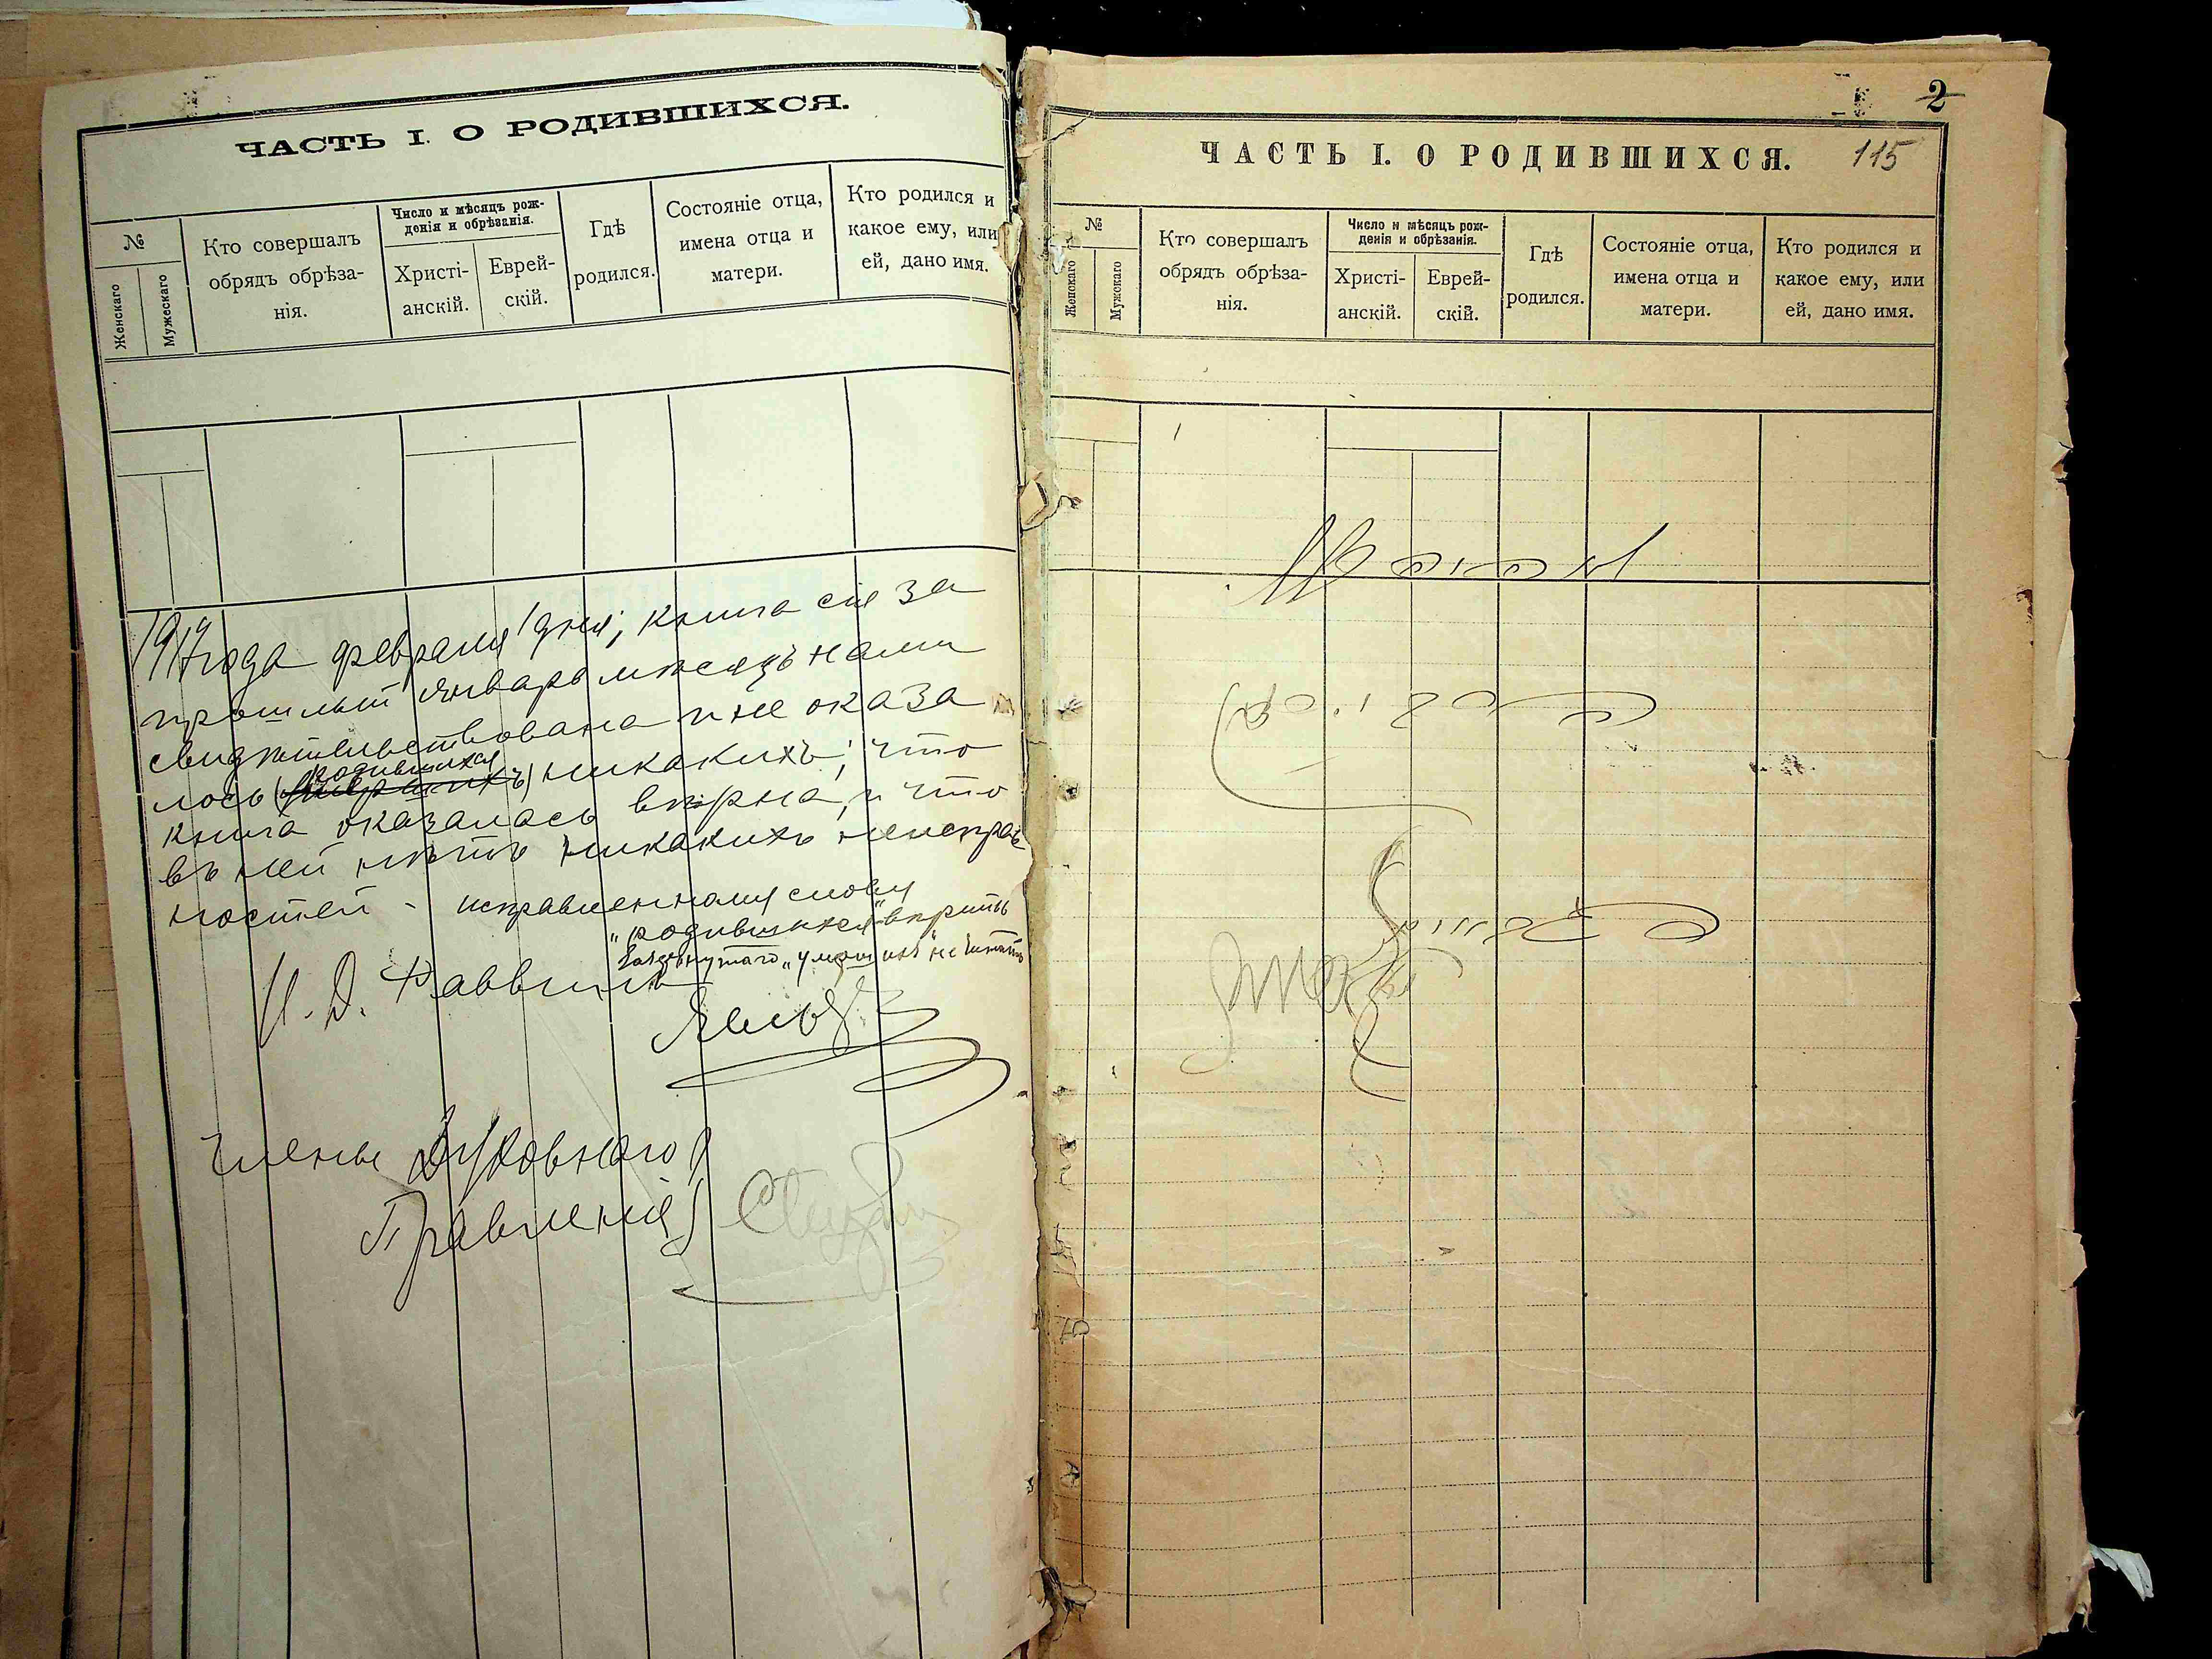 ЧАСТЬ I. О РОДИВШИХСЯ.
№
Женскаго
Мужескаго
Кто совершалъ
обрядъ обрѣза-
нія.
Число и мѣсяцъ рож-
денія и обрѣзанія.
Христі-
анскій.
Еврей-
скій.
Гдѣ
родился.
Состояніе отца,
имена отца и
матери.
Кто родился и
какое ему, или
ей, дано имя.
года февраля 1 дня, книга сія за
прошлый Январь мѣсяцъ нами
свидѣтельствована и не оказа
родившихся
лось ( ) никакихъ; что
книга оказалась вѣрна, и что
въ ней нѣтъ никакихъ неисправ
ностей - исправленному слову
"родившихся" вѣрить
зачеркнутаго "умершихъ" не читать
И. Д. Раввина
Члены Духовнаго
Правленія
2
ЧАСТЬ I. О РОДИВШИХСЯ.
115
№
Женскаго
Мужскаго
Кто совершалъ
обрядъ обрѣза-
нія.
Число и мѣсяцъ рож-
денія и обрѣзанія.
Христі-
анскій.
Еврей-
скій.
Гдѣ
родился.
Состояніе отца,
имена отца и
матери.
Кто родился и
какое ему, или
ей, дано имя.